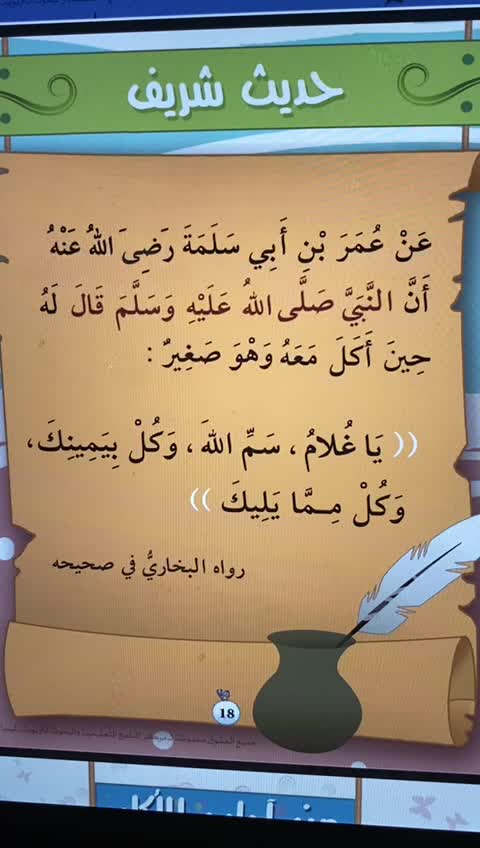 حديث شريف
عَنْ عُمَرَ بْنِ أَبِي سَلَمَةَ رَضِيَ اللهُ عَنْهُ
أَنَّ النَّبِيَّ صَلَّى اللهُ عَلَيْهِ وَسَلَّمَ قَالَ لَهُ
حِينَ أَكَلَ مَعَهُ وَهْوَ صَغِيرٌ :
(( يَا غُلامُ ، سَمِّ اللهَ ، وَكُلْ بِيَمِينِكَ ،
وَكُلْ مِـمَّا يَلِيكَ ))
رواه البخاريُّ في صحيحه
18